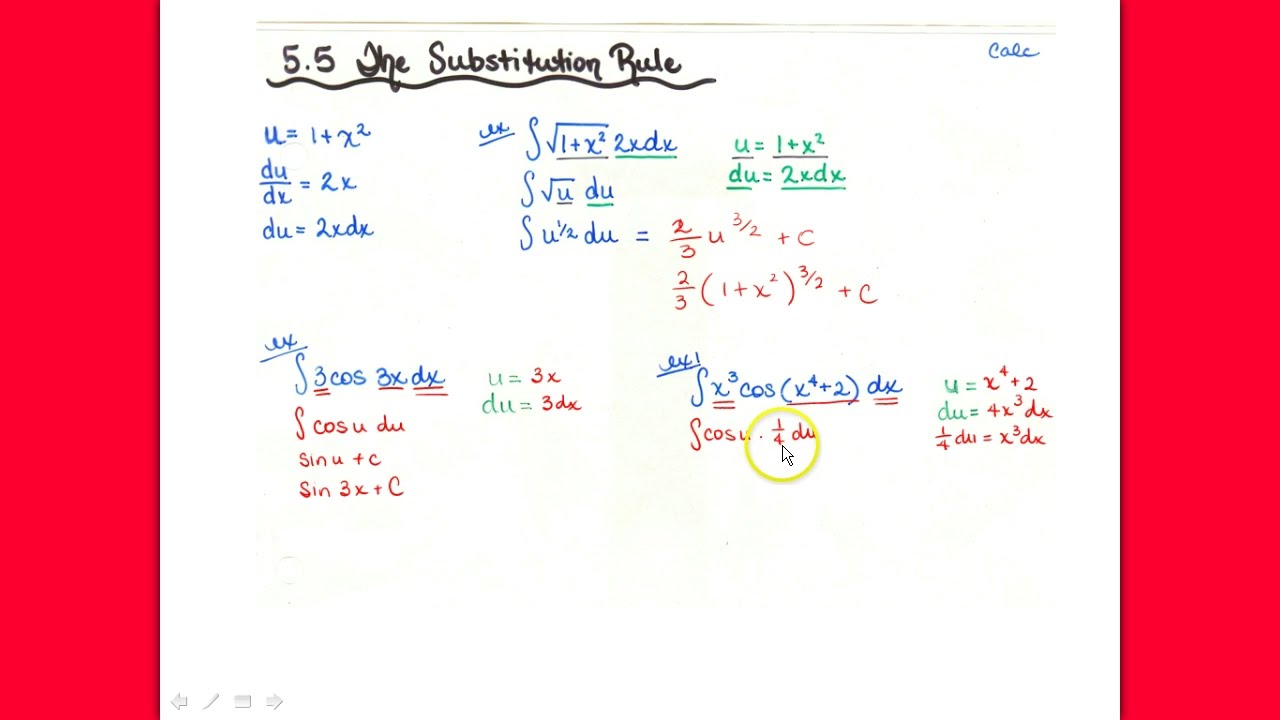 5.5 The Substitution Rule
Calc
u = 1+x²
du/dx = 2x
du = 2xdx
ex ∫√(1+x²) 2xdx
∫√u du
∫u^1/2 du = 2/3 u^3/2 + C
2/3 (1+x²)^3/2 + C
u = 1+x²
du = 2xdx
ex
∫3cos 3x dx
∫cosu du
sinu + c
Sin 3x + C
u = 3x
du = 3dx
ex1
∫x³cos(x⁴+2) dx
∫cosu · 1/4 du
u = x⁴+2
du = 4x³dx
1/4 du = x³dx